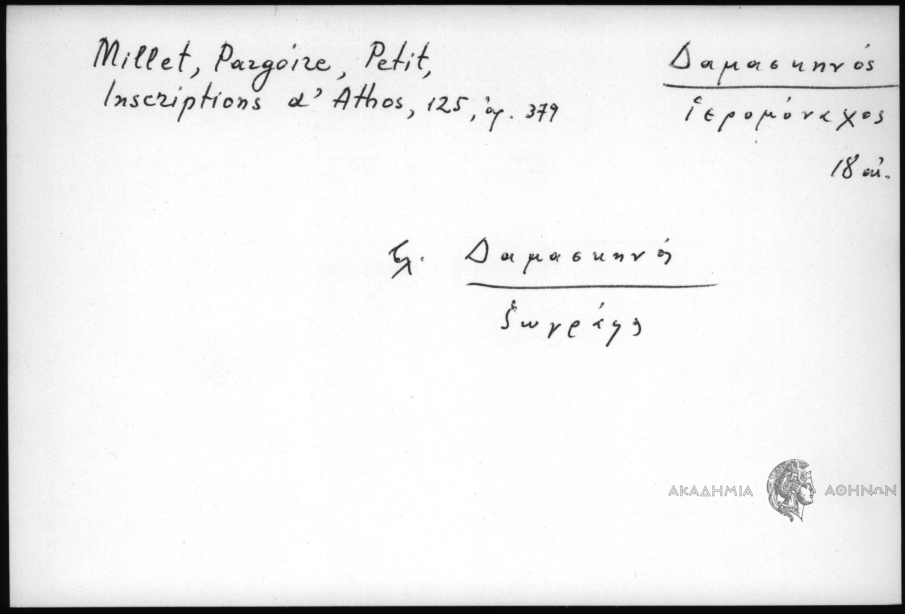 Millet, Pargoire, Petit,
Inscriptions d'Athos, 125, ἀρ. 379
Δαμασκηνός
ἱερομόναχος
18 αἰ.
Δαμασκηνός
ΑΚΑΔΗΜΙΑ ΑΘΗΝΩΝ